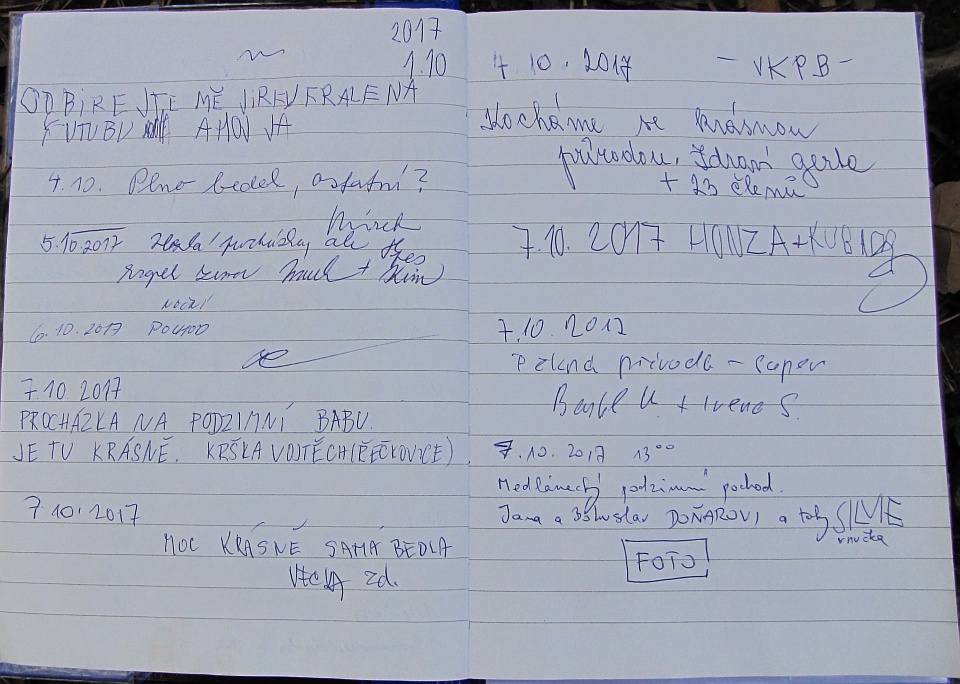 2017
1.10
ODBIREJTE MĚ
AHOJ JA
4.10. Plno bedel, ostatní?
Mirek
5.10.2017 ale
+ Kim
noční
6.10.2017 POCHOD
7.10. 2017
PROCHÁZKA NA PODZIMNÍ BABU.
JE TU KRÁSNĚ. KRŠKA VOJTĚCH (ŘEČKOVICE)
7.10.2017
MOC KRÁSNĚ SAMÁ BEDLA
zd.
7.10.2017 - VKPB -
Kocháme se krásnou
přírodou. Zdraví gerla
+ 23 členů
7.10. 2017 HONZA + KUBA
7.10. 2017
Pěkná příroda - super
K. + Irena S.
7.10.2017 13⁰⁰
Medlánecký podzimní pochod.
Jana a Bohuslav DOŇAROVI a taky SILVIE
vnučka
FOTO